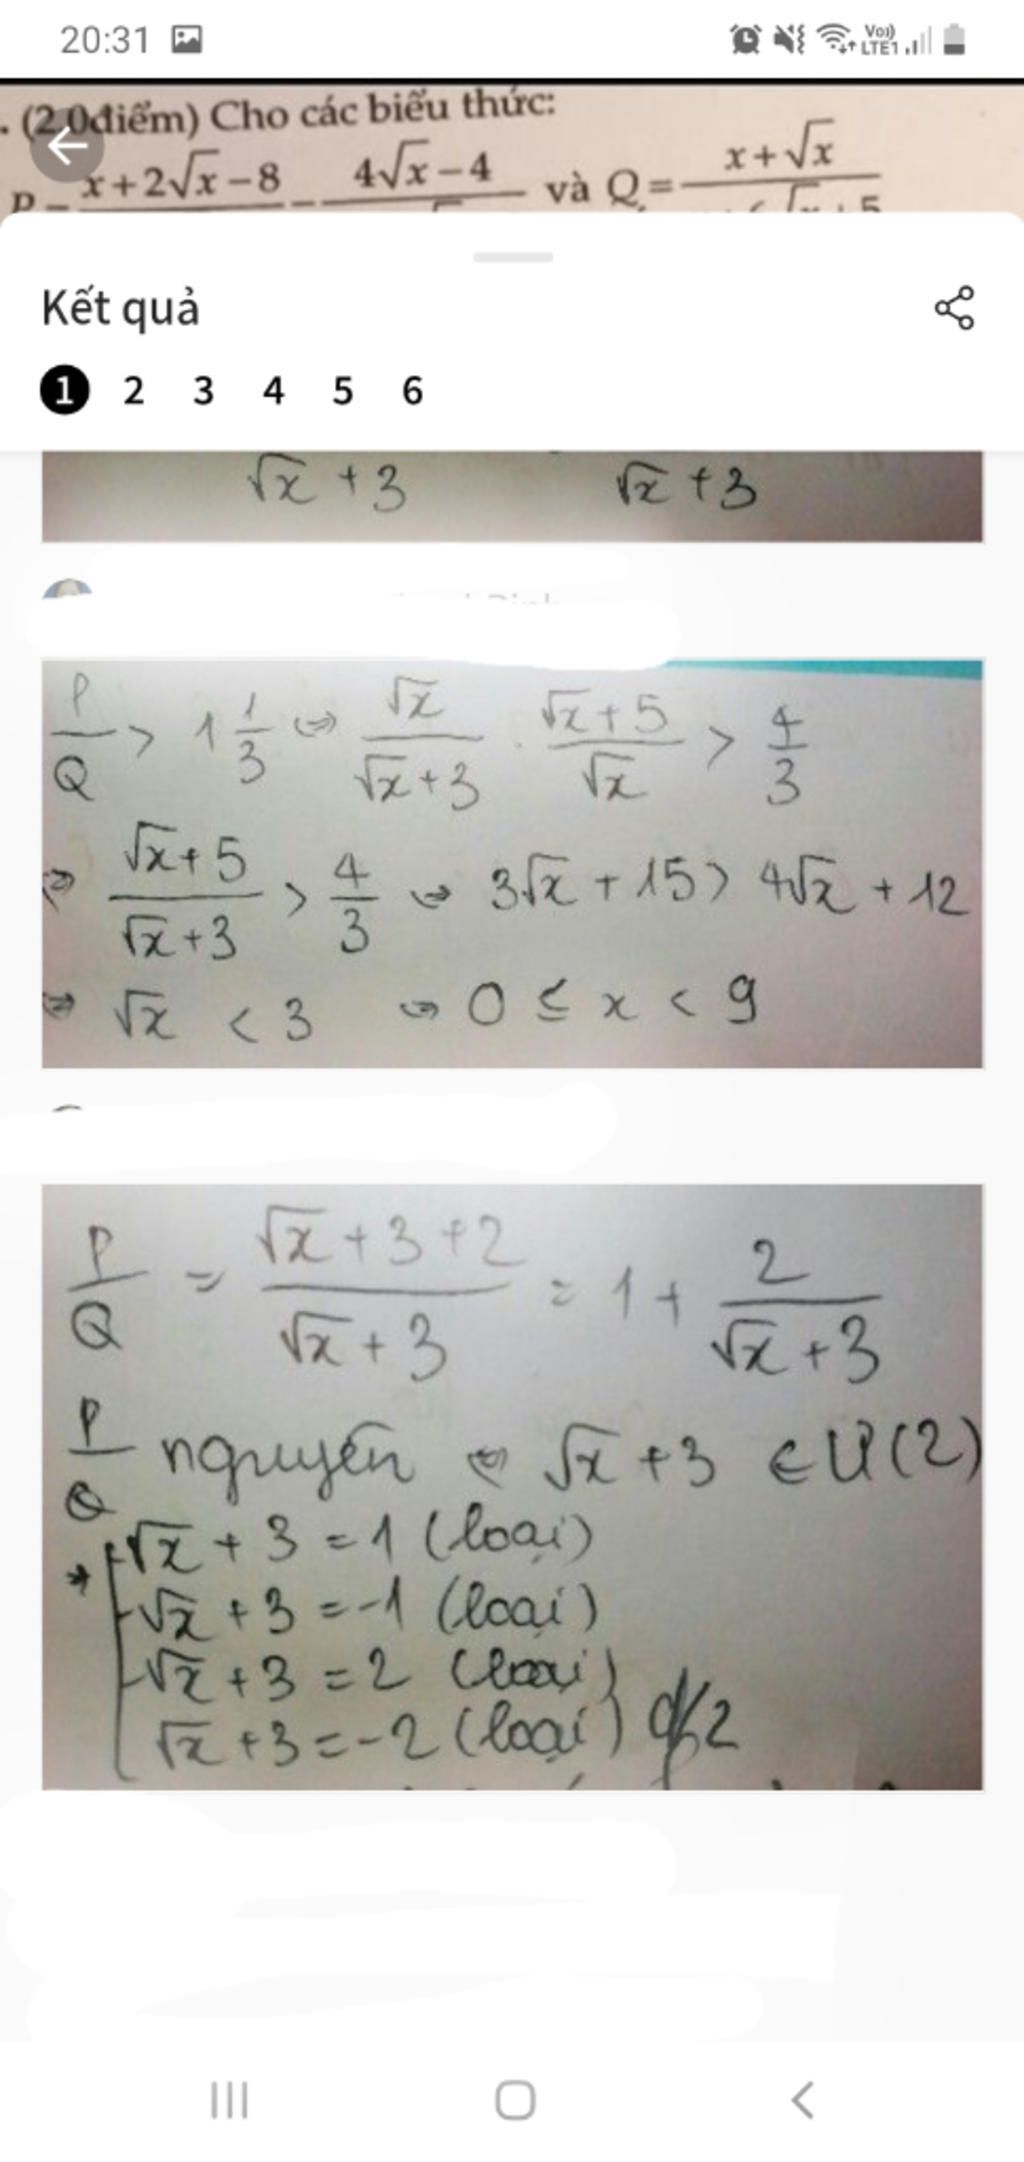 20:31
Voj) LTE1
. (2,0điểm) Cho các biểu thức:
x+2√x-8 - 4√x-4 và Q= x+√x
Kết quả
1 2 3 4 5 6
√x + 3 √x + 3
P/Q > 1 1/3 ⇔ √x/(√x+3) . (√x+5)/√x > 4/3
⇔ (√x+5)/(√x+3) > 4/3 ⇔ 3√x + 15 > 4√x + 12
⇔ √x < 3 ⇔ 0 ≤ x < 9
P/Q = (√x+3+2)/(√x+3) = 1 + 2/(√x+3)
P/Q nguyên ⇔ √x+3 ∈ Ư(2)
√x + 3 = 1 (loại)
√x + 3 = -1 (loại)
√x + 3 = 2 (loại)
√x + 3 = -2 (loại)